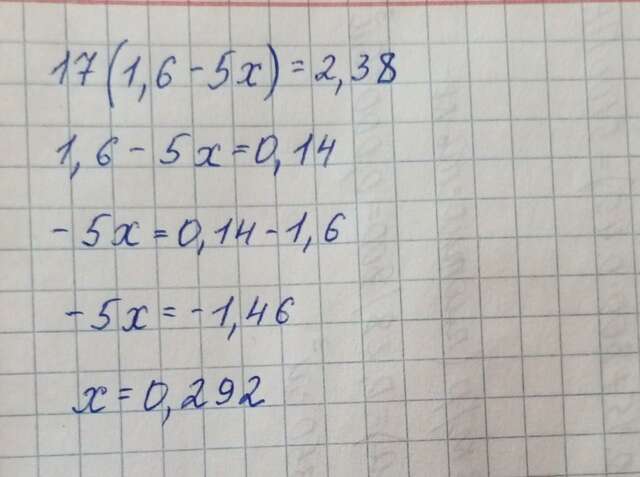 17(1,6-5x)=2,38
1,6-5x=0,14
-5x=0,14-1,6
-5x=-1,46
x=0,292